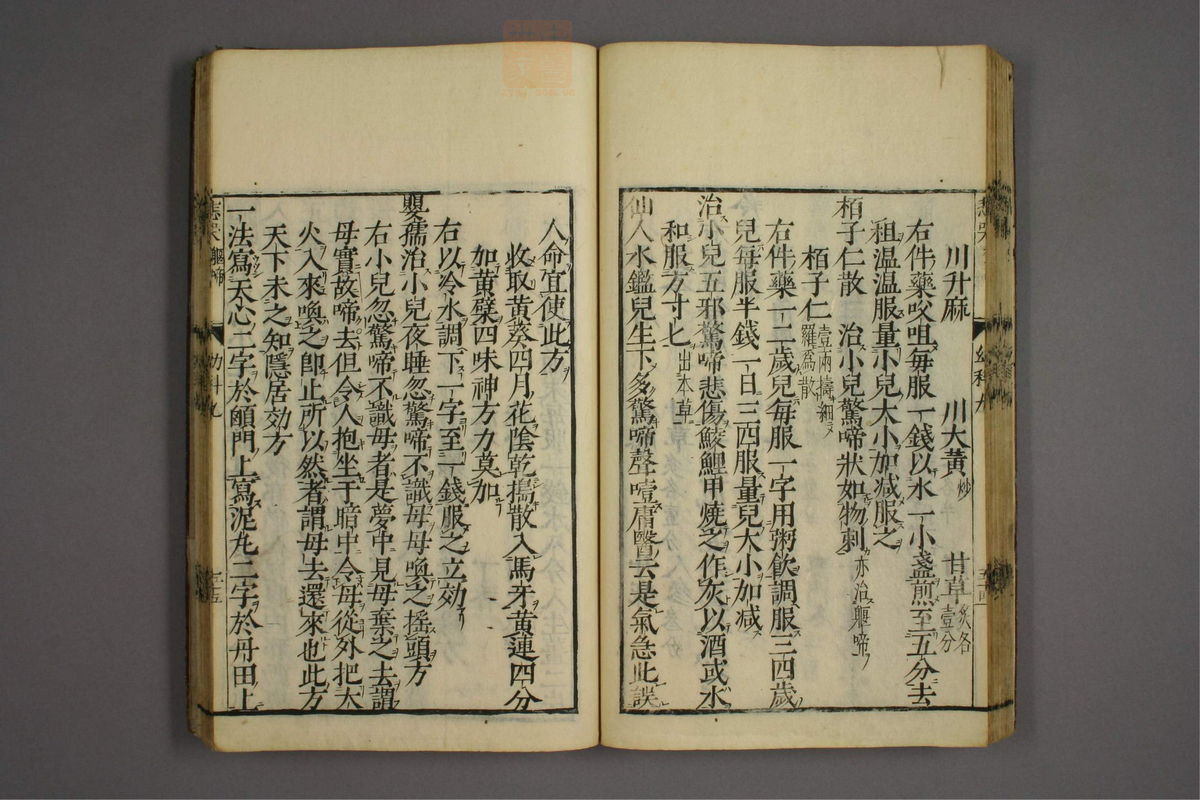 川升麻　川大黄炒　甘草炙各壹分
右件藥㕮咀毎服一錢以水一小盞煎至五分去
柤温温服量小兒大小加减服之
栢子仁散　治小兒驚啼狀如物刺亦治軀啼
栢子仁壹兩擣細羅爲散
右件藥一二歲兒毎服一字用粥飲調服三四歲
兒毎服半錢一日三四服量兒大小加减
治小兒五邪驚啼悲傷鮫鯉甲燒之作灰以酒或水
和服方寸匕出本草
仙人水鑑兒生下多驚啼聲噎庸醫云是氣急此誤
人命宜使此方
收取黄葵四月花陰乾搗散入馬牙黄蓮四分
如黄蘗四味神方力莫加
右以冷水調下一字至一錢服之立効
嬰孺治小兒夜睡忽驚啼不識母母喚之摇頭方
右小兒忽驚啼不識母者是夢中見母棄之去謂
母實故啼去但令人抱坐于暗中令母從外把大
火入來喚之卽止所以然者謂母去還來也此方
天下未之知隱居効方
一法寫天心二字於顖門上寫泥丸二字於丹田上